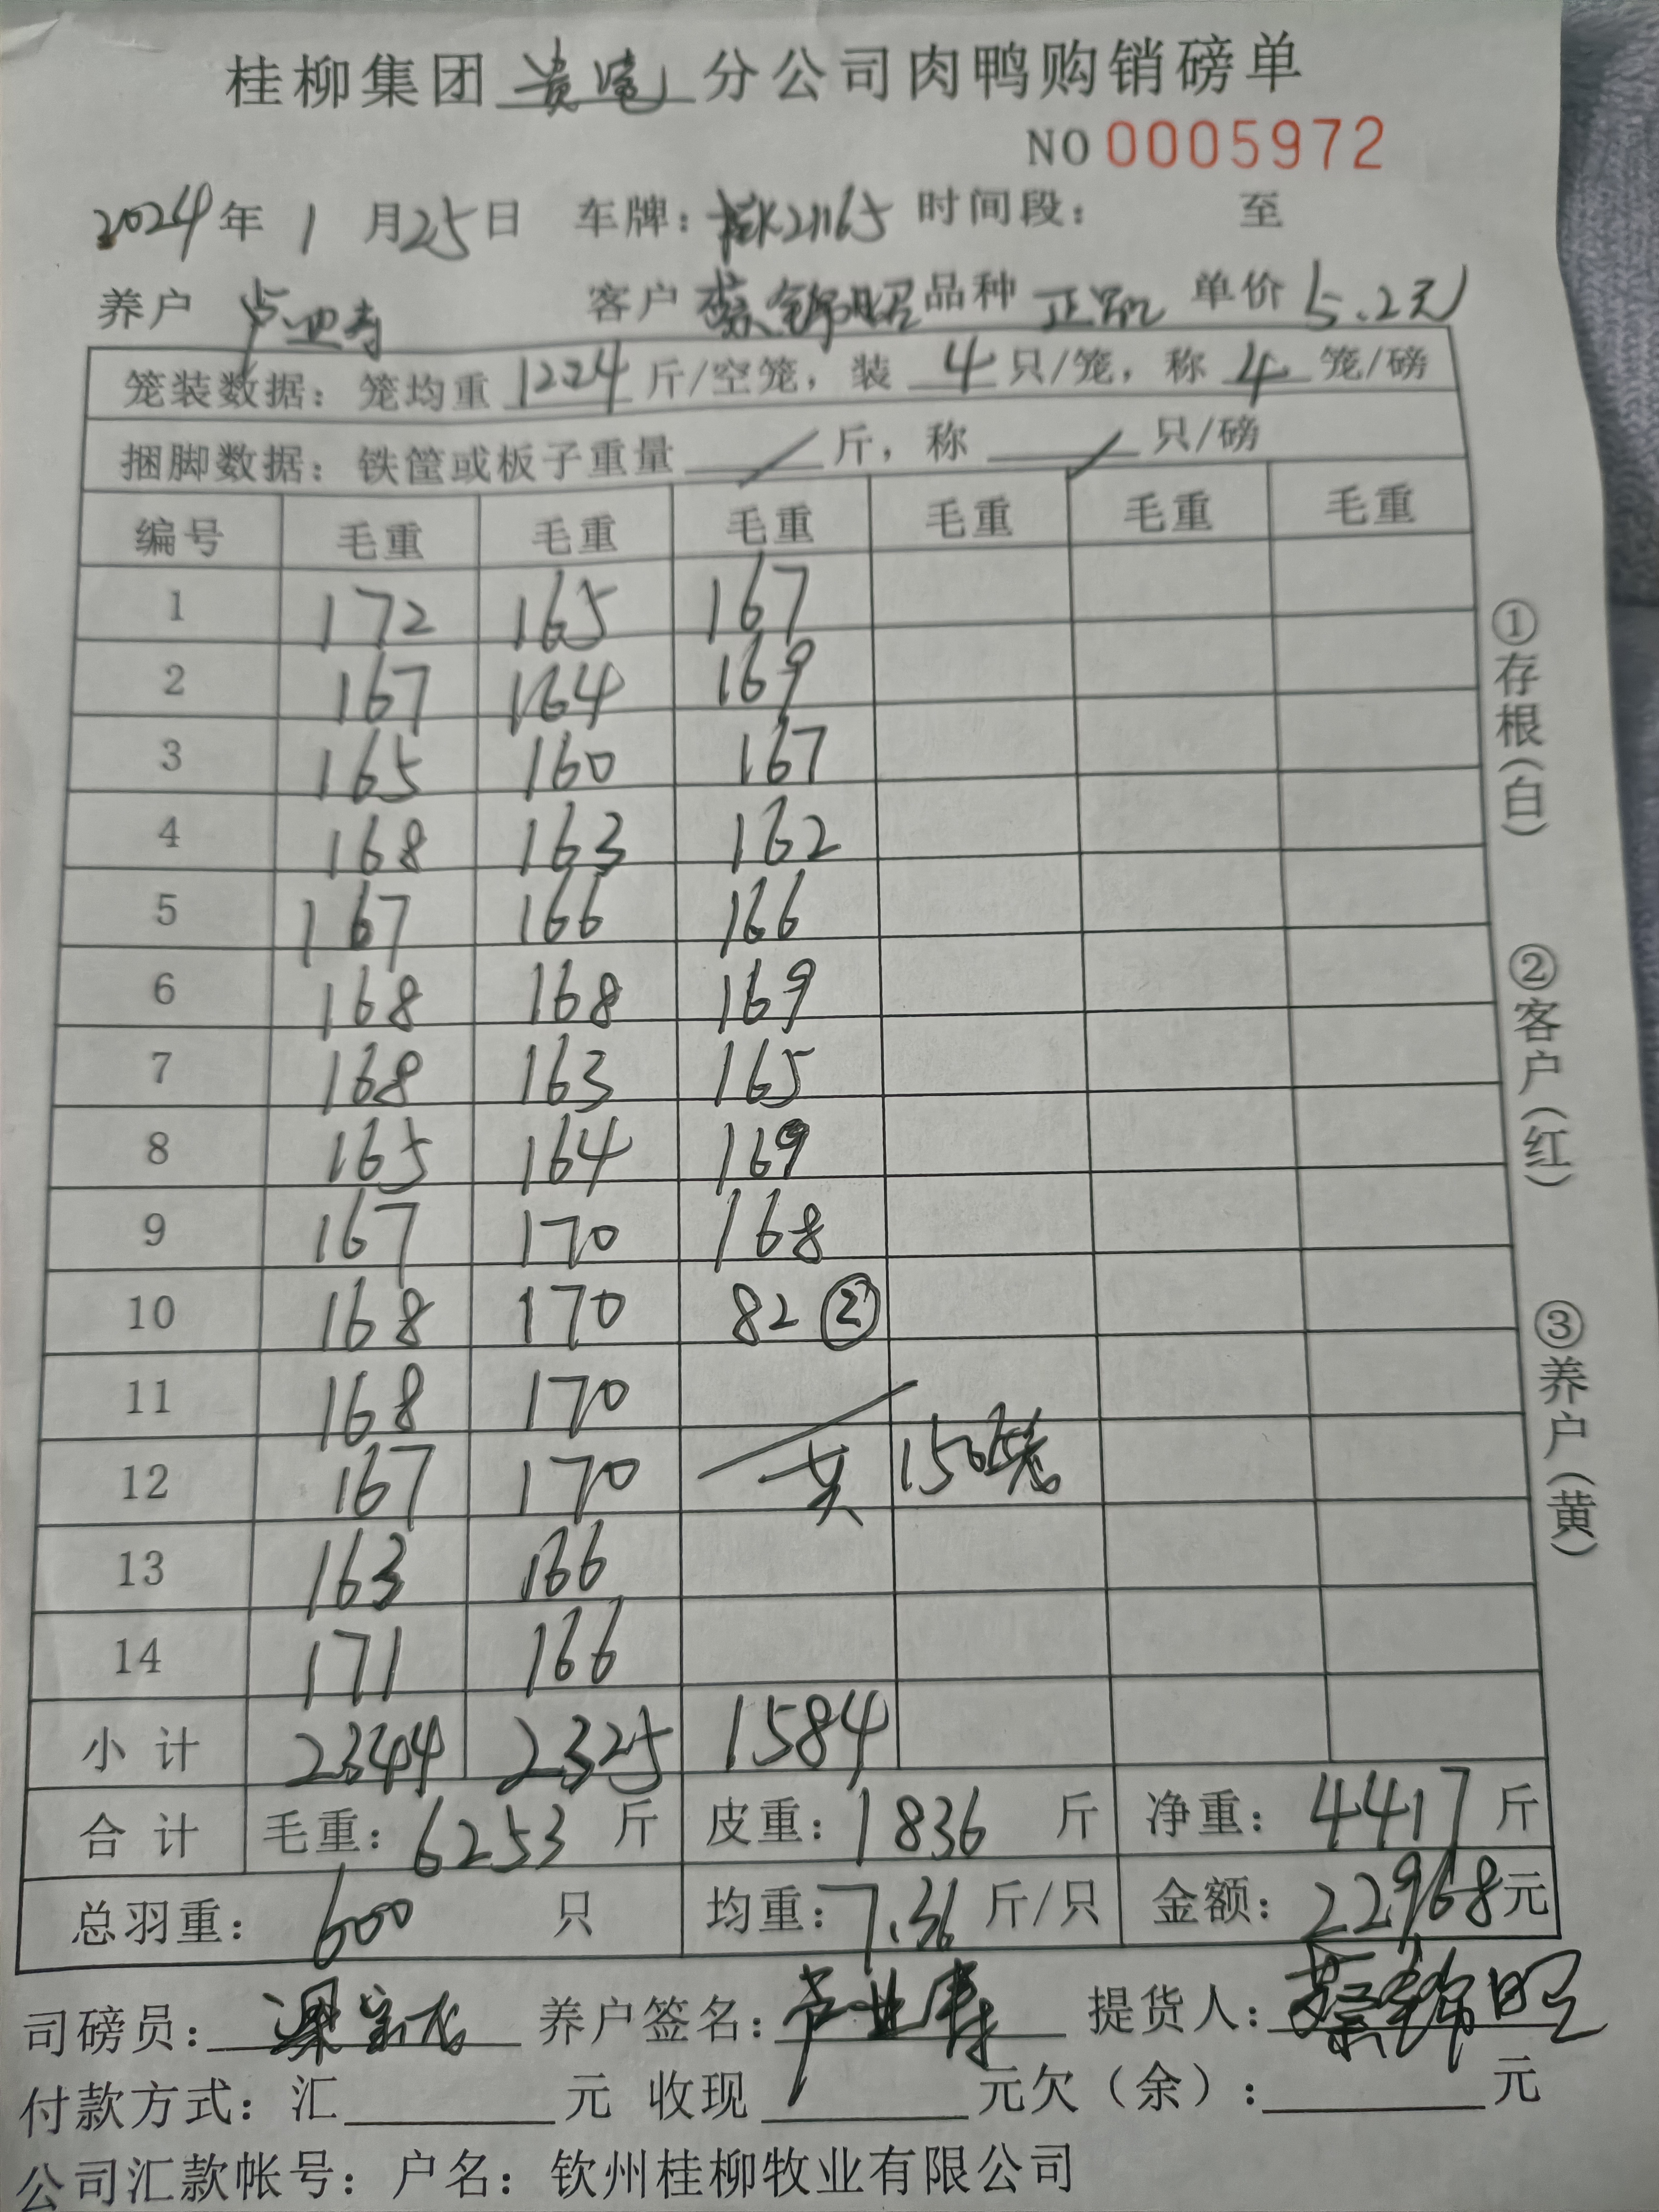 桂柳集团 贵港 分公司肉鸭购销磅单
NO 0005972
2024年 1 月25日 车牌：桂K21165 时间段： 至
养户 卢业寿 客户 蔡锦昭 品种 正品 单价 5.2元
笼装数据：笼均重 12.24 斤/空笼，装 4 只/笼，称 4 笼/磅
捆脚数据：铁筐或板子重量 / 斤，称 / 只/磅
编号 毛重 毛重 毛重 毛重 毛重 毛重
1 172 165 167
2 167 164 169
3 165 160 167
4 168 163 162
5 167 166 166
6 168 168 169
7 168 163 165
8 165 164 169
9 167 170 168
10 168 170 82 ②
11 168 170
12 167 170 共 150笼
13 163 166
14 171 166
小 计 2344 2325 1584
合 计 毛重：6253 斤 皮重：1836 斤 净重：4417 斤
总羽重：600 只 均重：7.36 斤/只 金额：22968元
司磅员： 养户签名：卢业寿 提货人：蔡锦昭
付款方式：汇 元 收现 元欠（余）： 元
公司汇款帐号：户名：钦州桂柳牧业有限公司
①存根（白）
②客户（红）
③养户（黄）